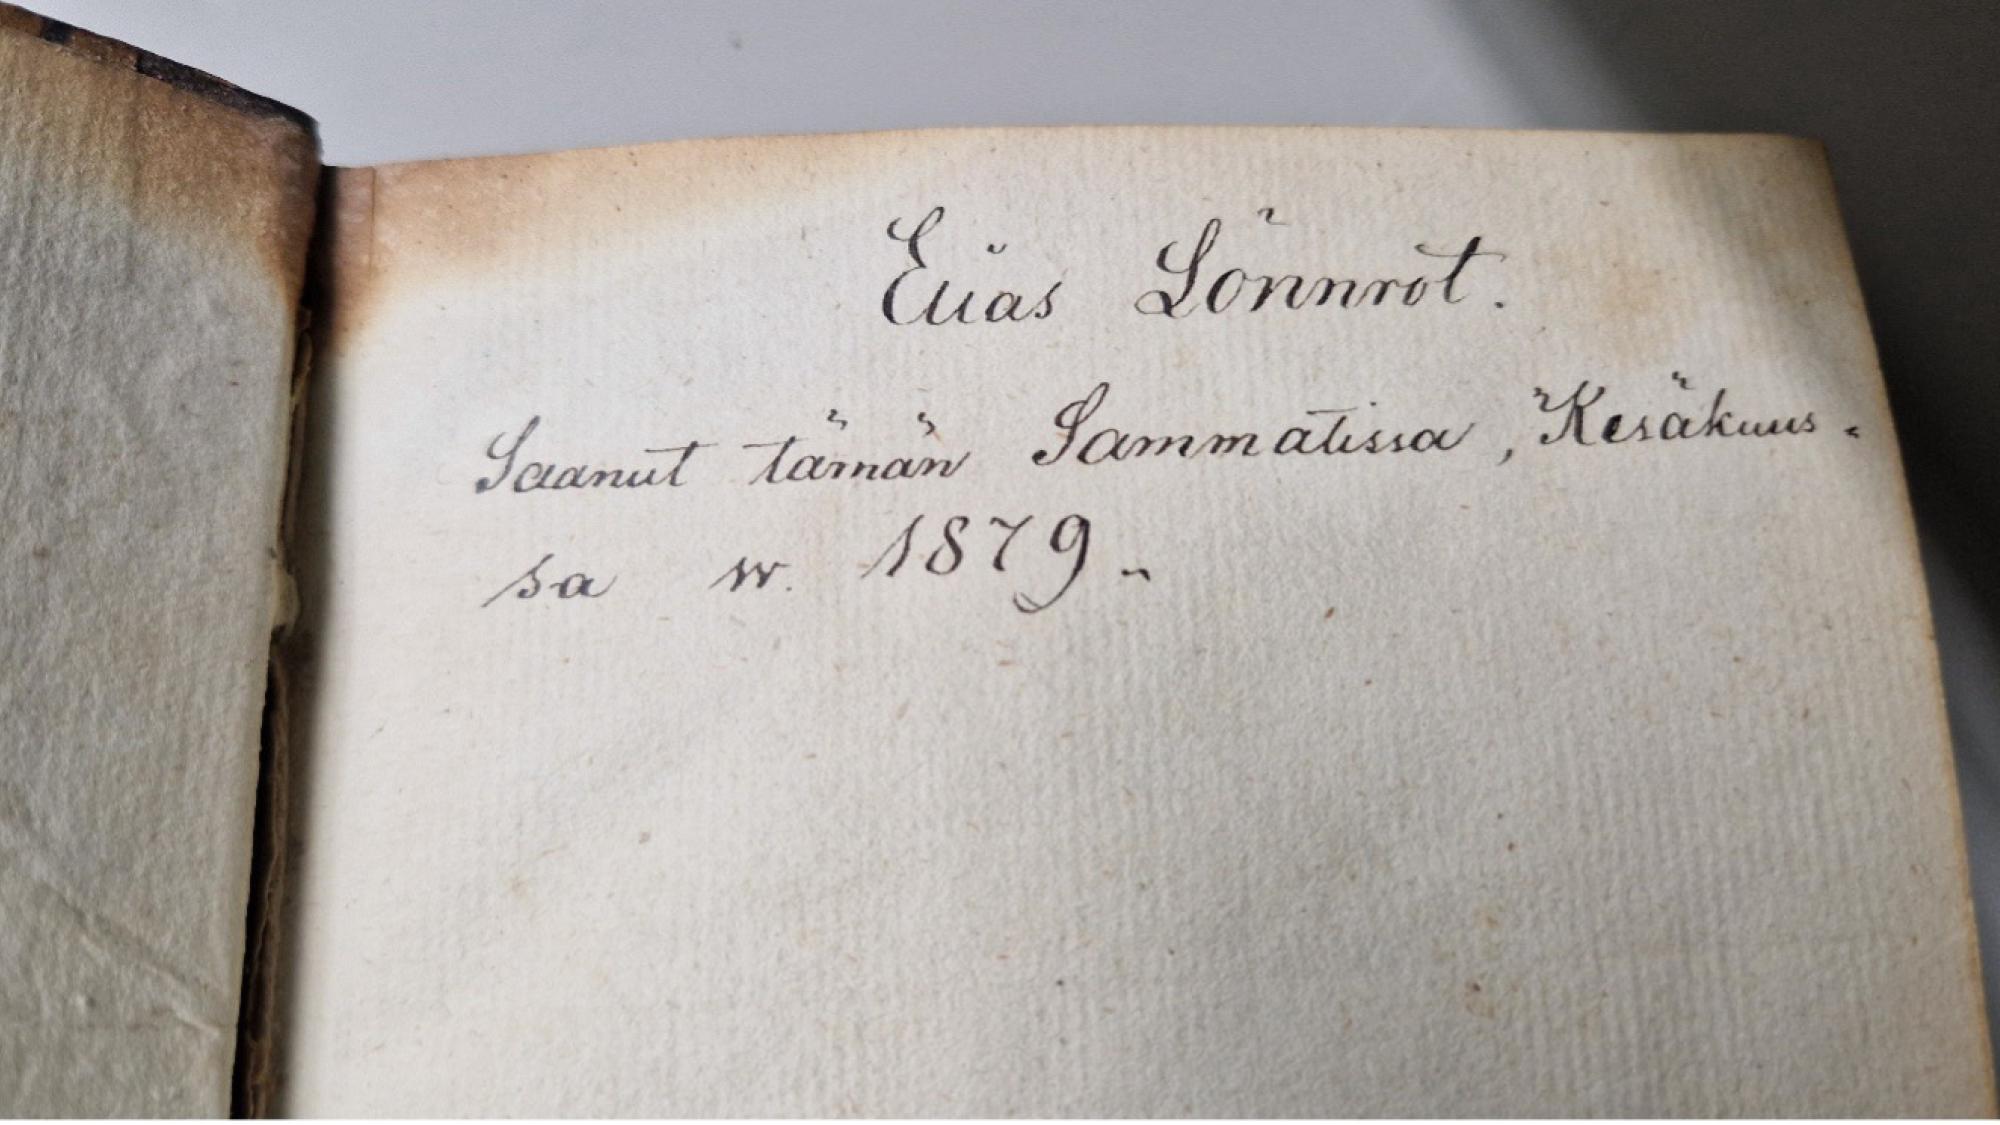 Elias Lönnrot.
Saanut tämän Sammatissa, Kesäkuus-
sa w. 1879.